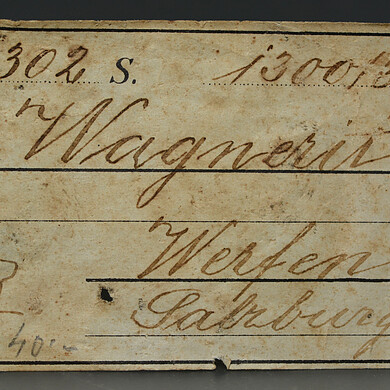 302 S. 13001
Wagnerit
Werfen
Salzburg
40.-